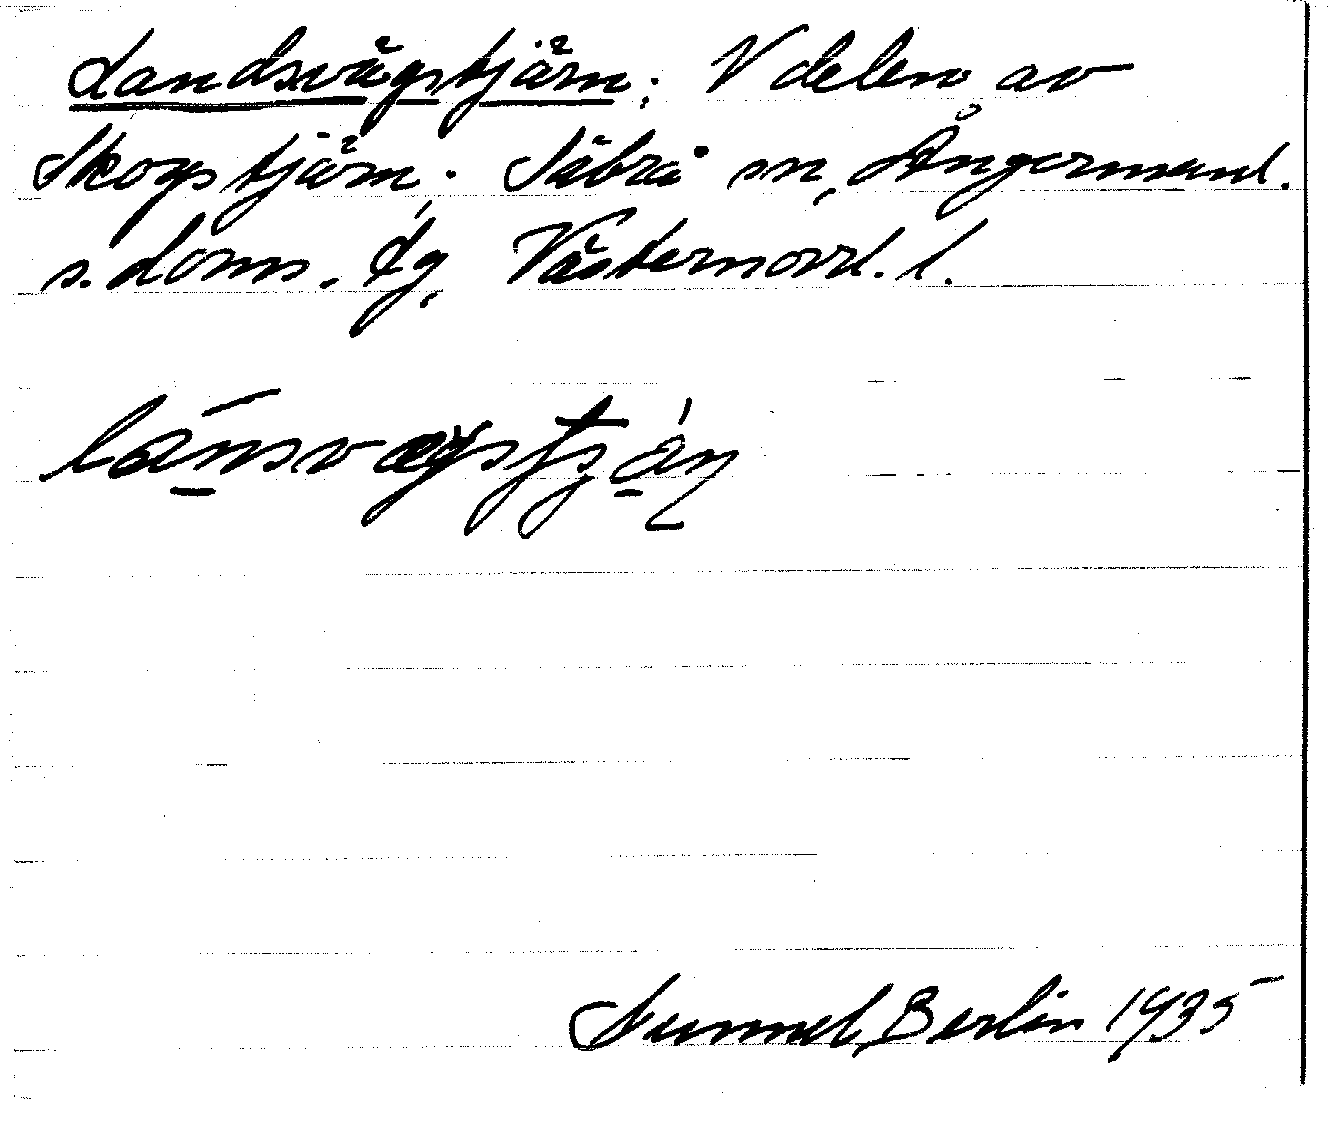 Landsvägstjärn; V delen av
Skogstjärn; Säbrå sn, Ångermanl.
s. doms. Lg, Västernorrl. l.
Gunnel Berlin 1935